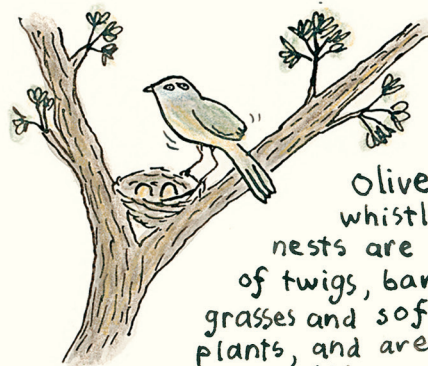 Olive
whistl
nests are
of twigs, bar
grasses and sof
plants, and are